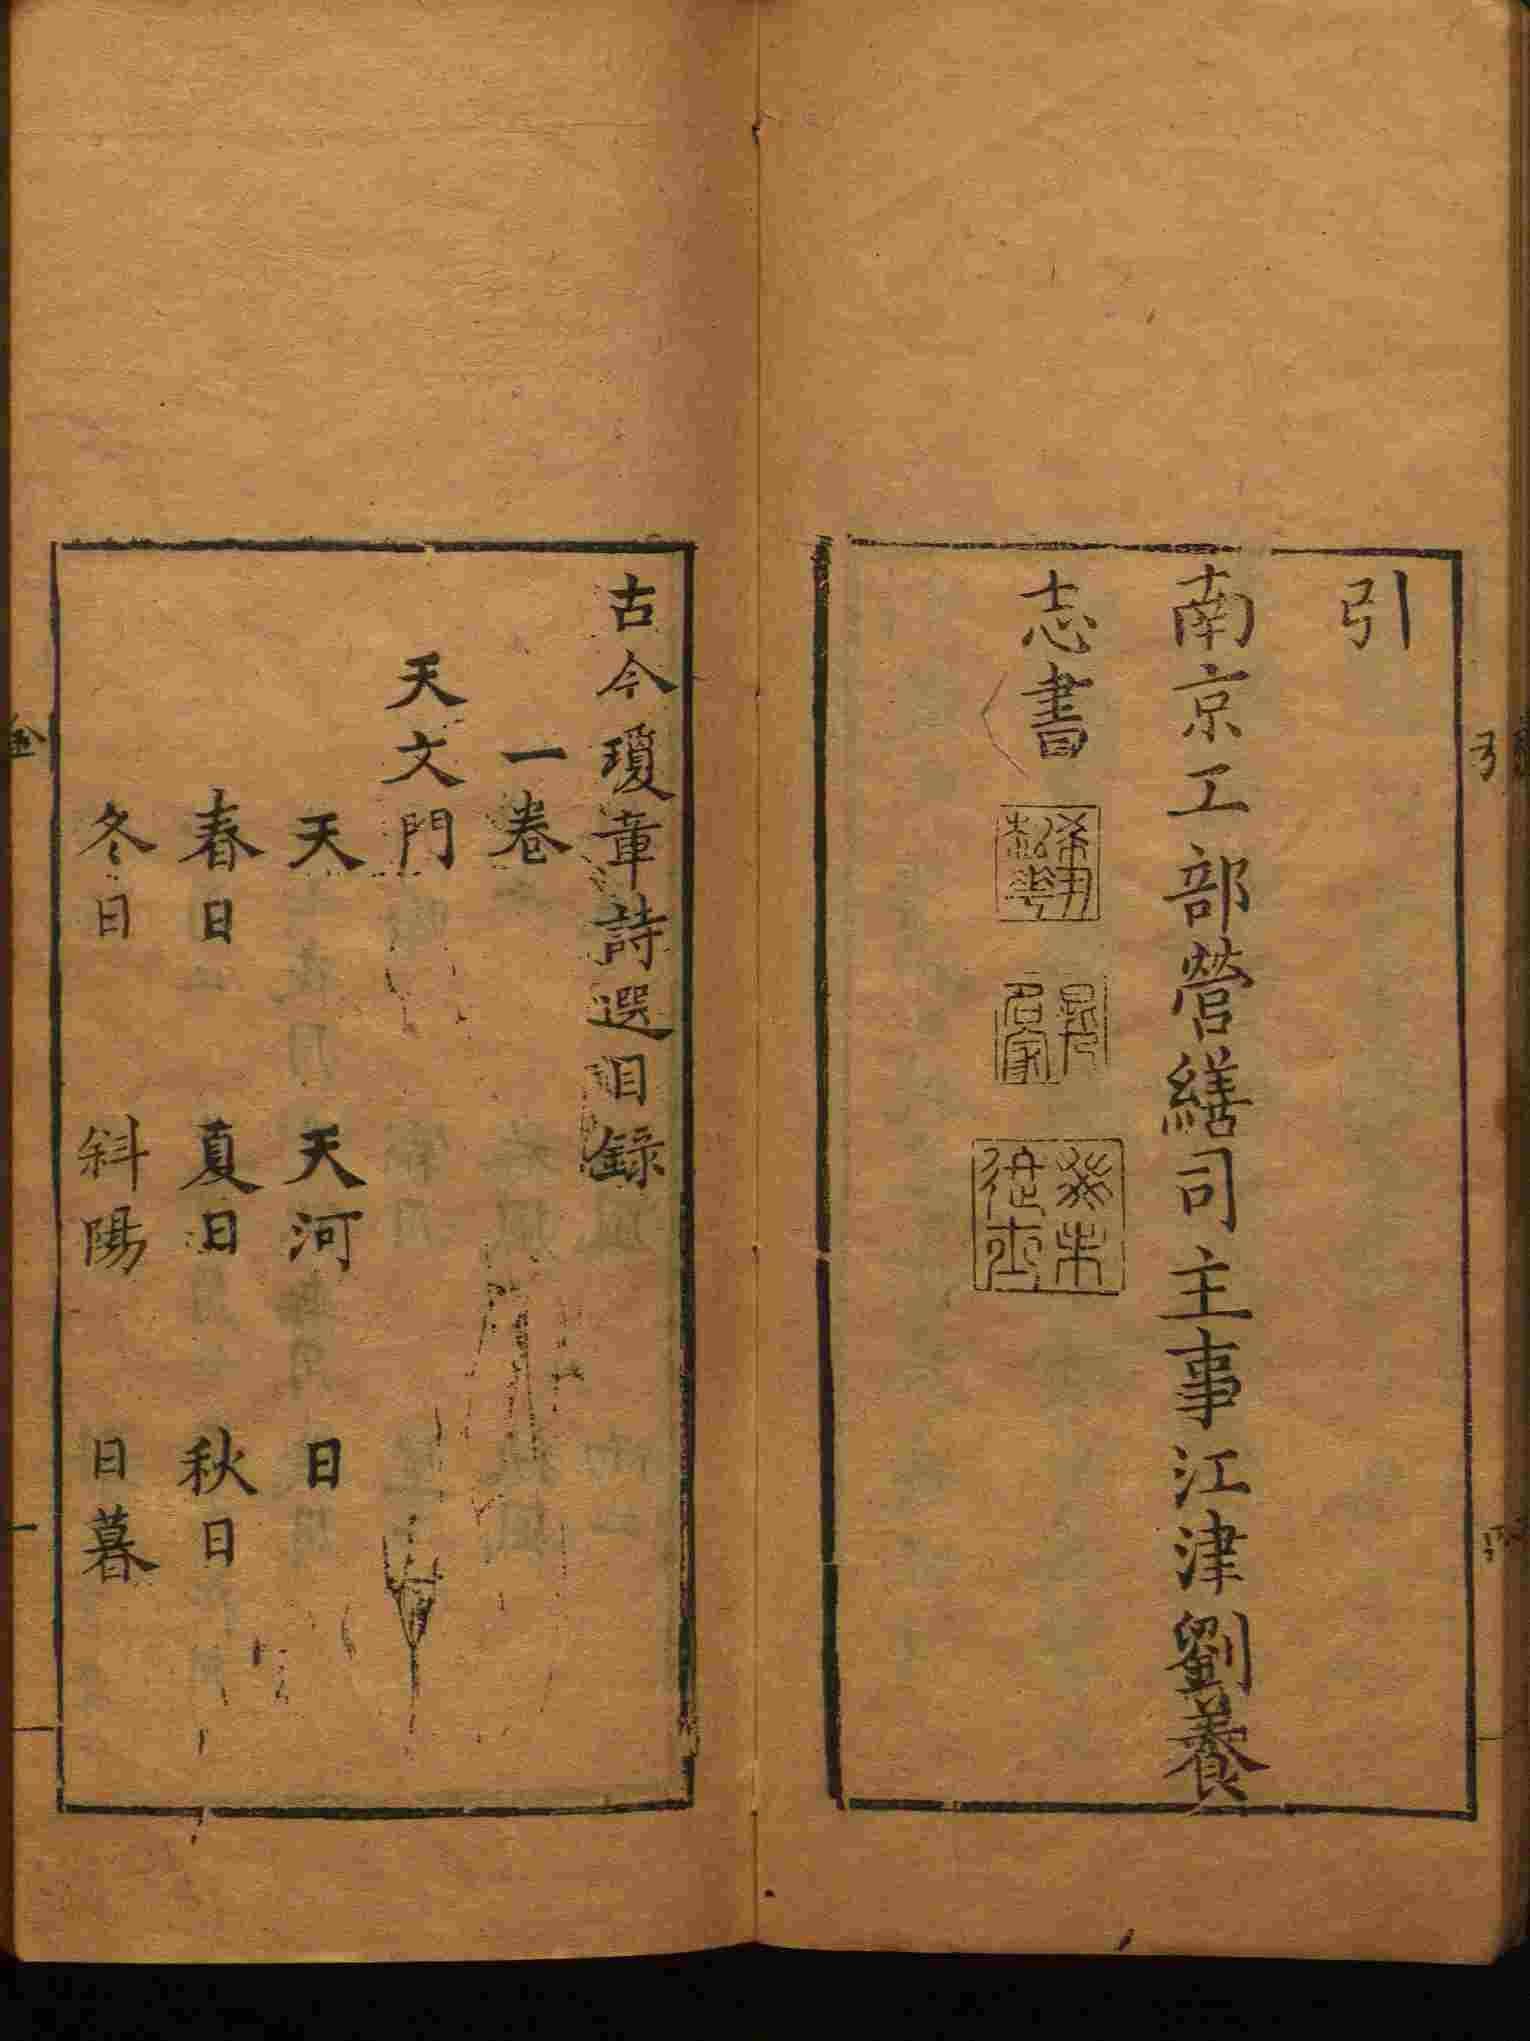 引
南京工部營繕司主事江津劉養
志書
古今瓊章詩選目錄
一卷
天文門
天 天河 日
春日 夏日 秋日
冬日 斜陽 日暮